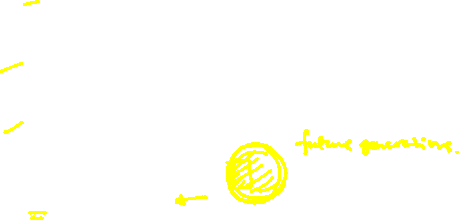 future generations.